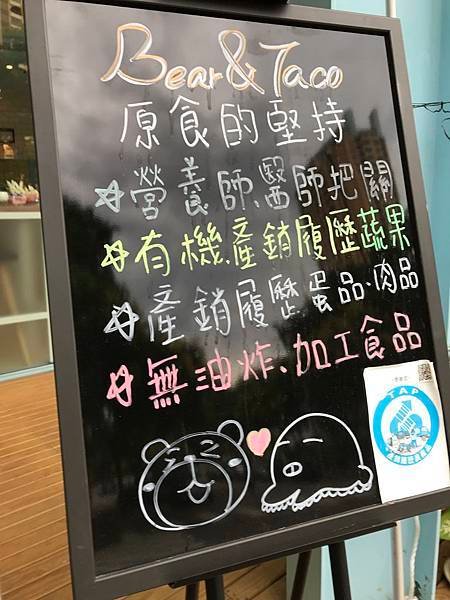 Bear & Taco
原食的堅持
☆營養師、醫師把關
☆有機、產銷履歷蔬果
☆產銷履歷蛋品、肉品
☆無油炸、加工食品
TAP